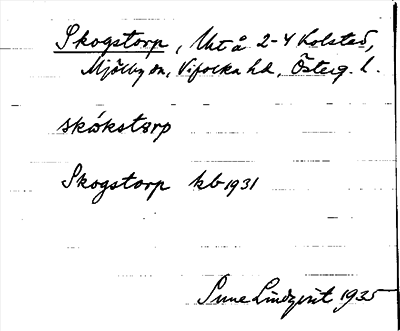 Skogstorp, Utå 2-4 Kolstad,
Mjölby sn, Vifolka hd, Österg. l.
skókstɷrp
Skogstorp kb 1931
Sune Lindqvist 1935